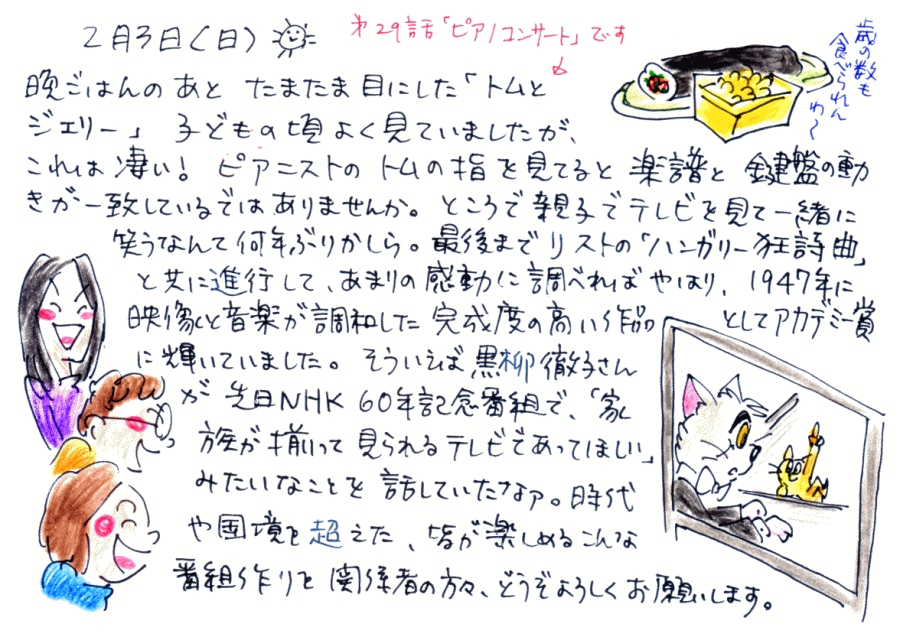 2月3日(日)
第29話「ピアノコンサート」です
歳の数も
食べられん
わ〜
晩ごはんのあと たまたま目にした「トムと
ジェリー」 子どもの頃よく見ていましたが、
これは凄い! ピアニストのトムの指を見てると楽譜と鍵盤の動
きが一致しているではありませんか。ところで親子でテレビを見て一緒に
笑うなんて何年ぶりかしら。最後までリストの「ハンガリー狂詩曲」
と共に進行して、あまりの感動に調べればやはり、1947年に
映像と音楽が調和した完成度の高い作品としてアカデミー賞
に輝いていました。そういえば黒柳徹子さん
が先日NHK60年記念番組で、「家
族が揃って見られるテレビであってほしい」
みたいなことを話していたなァ。時代
や国境を超えた、皆が楽しめるこんな
番組作りを関係者の方々、どうぞよろしくお願いします。